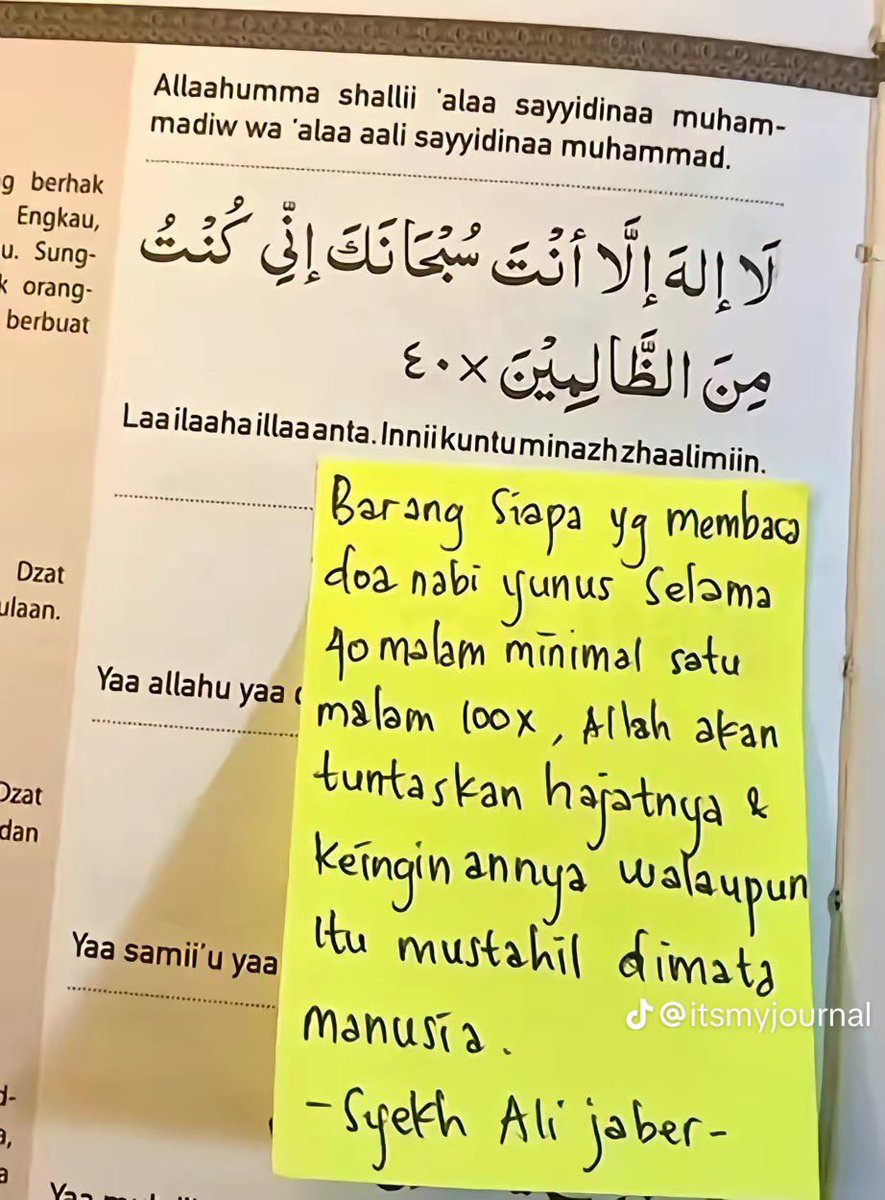 Allaahumma shallii 'alaa sayyidinaa muham-
madiw wa 'alaa aali sayyidinaa muhammad.
g berhak
Engkau,
u. Sung-
k orang-
berbuat
لَا إِلهَ إِلَّا أَنْتَ سُبْحَانَكَ إِنِّي كُنْتُ
مِنَ الظَّالِمِيْنَ ×٤٠
Laa ilaaha illaa anta. Innii kuntu minazh zhaalimiin.
Dzat
ulaan.
Yaa allahu yaa
Dzat
dan
Yaa samii'u yaa
d-
a,
a
Yaa
Barang siapa yg membaca
doa nabi yunus selama
40 malam minimal satu
malam 100x, Allah akan
tuntaskan hajatnya &
keinginannya walaupun
itu mustahil dimata
manusia.
-Syekh Ali jaber-
@itsmyjournal